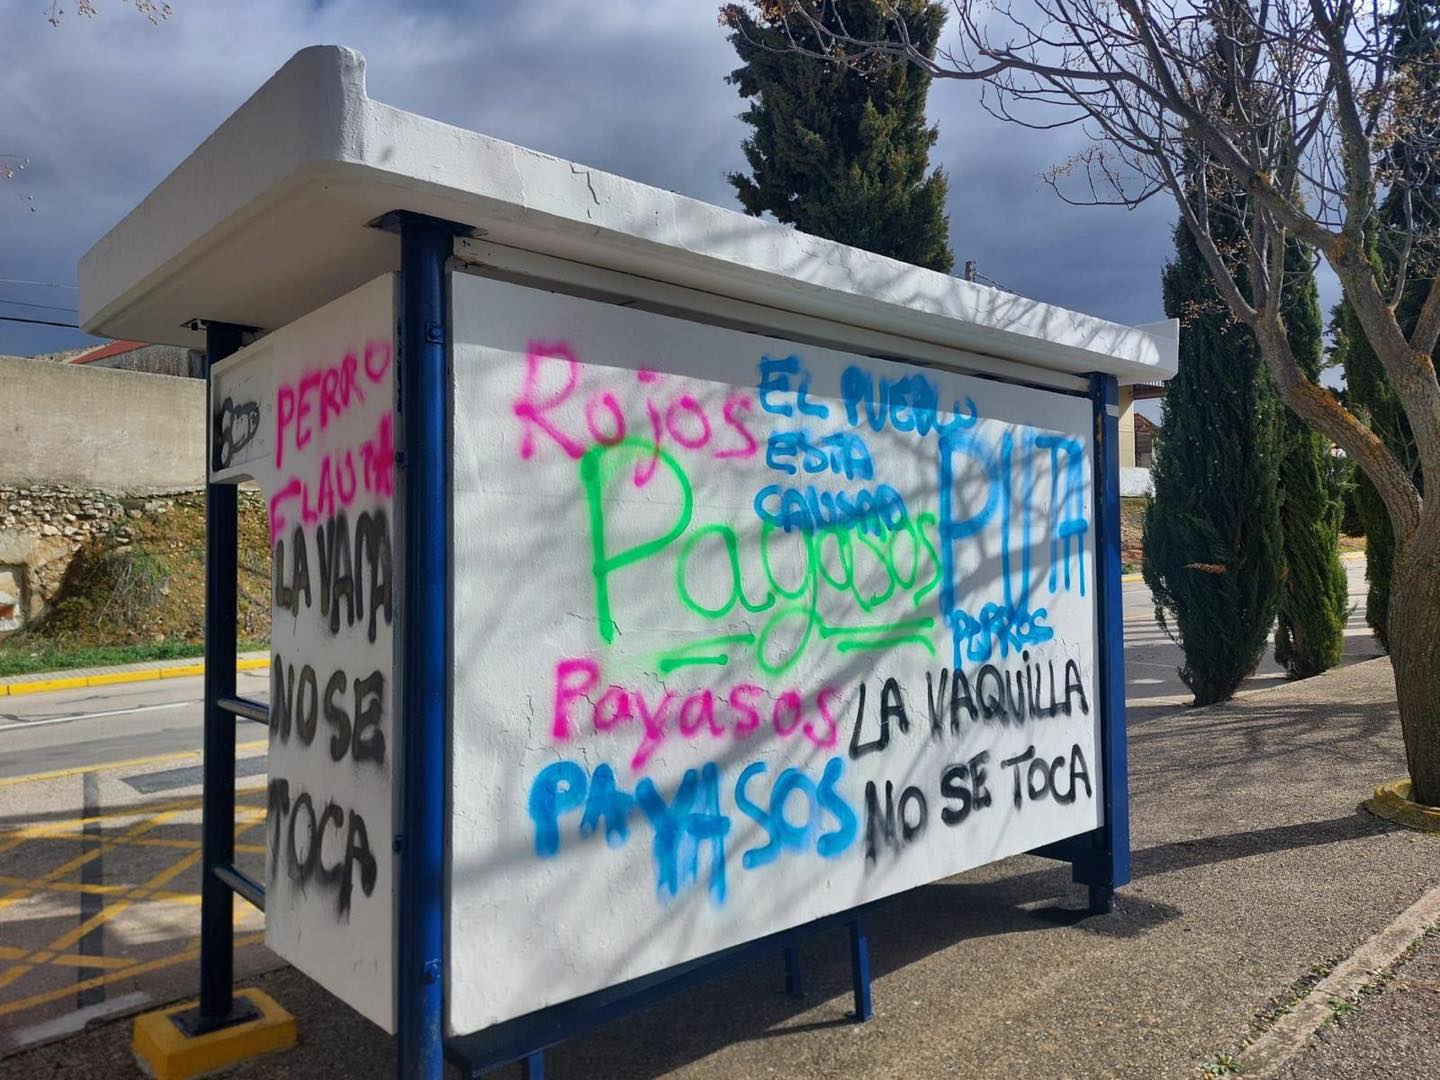 PERRO
FLAUTA
LA VACA
NO SE
TOCA
Rojos
EL PUEBLO
ESTA
CANSAO
Payasos
PUTA
PERROS
Payasos
LA VAQUILLA
NO SE TOCA
PAYASOS